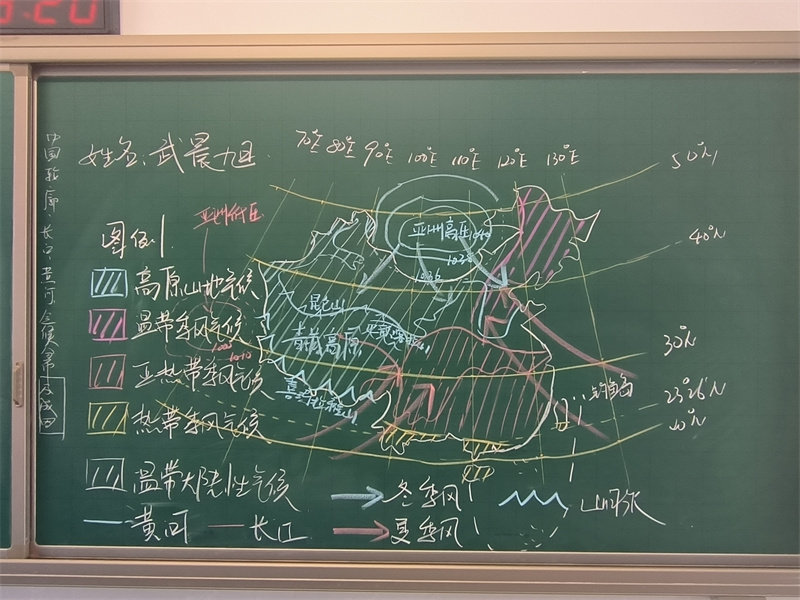 :20
姓名:武晨旭
70°E 80°E 90°E 100°E 110°E 120°E 130°E
50°N
40°N
30°N
23°26′N
20°N
亚洲低压
图例
高原山地气候
温带季风气候
亚热带季风气候
热带季风气候
温带大陆性气候
黄河
长江
冬季风
夏季风
山脉
亚洲高压
1040
1036
昆仑山
青藏高原
喜马拉雅山
1010
中国轮廓、长江、黄河、气候